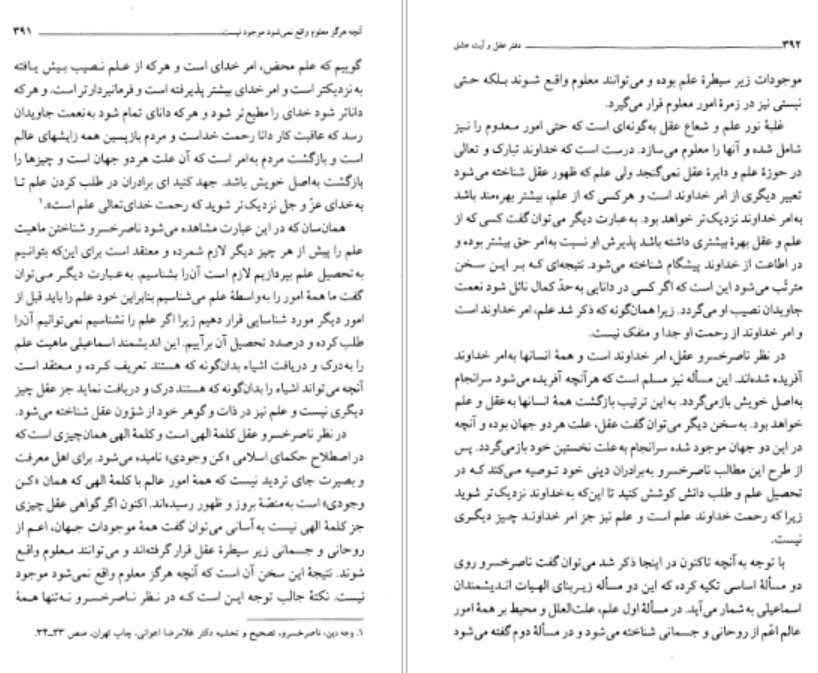 آنچه هرگز معلوم واقع نمی‌شود موجود نیست ۳۹۱
گوییم که علم محض، امر خدای است و هرکه از عـلم نـصیب بـیش یـافته
به نزدیکتر است و امر خدای بیشتر پذیرفته است و فرمانبردارتر است. و هرکه
داناتر شود خدای را مطیع‌تر شود و هرکه دانای تمام شود به‌نعمت جاویدان
رسد که عاقبت کار دانا رحمت خداست و مردم بازپسین همه زایشهای عالم
است و بازگشت مردم به‌امر است که آن علت هردو جهان است و چیزها را
بازگشت به‌اصل خویش باشد. جهد کنید ای برادران در طلب کردن علم تـا
به‌خدای عزّ و جل نزدیک‌تر شوید که رحمت خدای‌تعالی علم است».۱
همان‌سان که در این عبارت مشاهده می‌شود ناصرخسرو شناختن ماهیت
علم را پیش از هر چیز دیگر لازم شمرده و معتقد است برای این‌که بتوانیم
به‌تحصیل علم بپردازیم لازم است آن‌را بشناسیم. به‌عبارت دیگـر مـی‌توان
گفت ما همهٔ امور را به‌واسطهٔ علم می‌شناسیم بنابراین خود علم را باید قبل از
امور دیگر مورد شناسایی قرار دهیم زیرا اگر علم را نشناسیم نمی‌توانیم آن‌را
طلب کرده و درصدد تحصیل آن برآییم. این اندیشمند اسماعیلی ماهیت علم
را به‌درک و دریافت اشیاء بدان‌گونه که هستند تعریف کـرده و مـعتقد است
آنچه می‌تواند اشیاء را بدان‌گونه که هستند درک و دریافت نماید جز عقل چیز
دیگری نیست و علم نیز در ذات و گوهر خود از شؤون عقل شناخته می‌شود.
در نظر ناصرخسرو عقل کلمهٔ الهی است و کلمهٔ الهی همان‌چیزی است که
در اصطلاح حکمای اسلامی «کن وجودی» نامیده می‌شود. برای اهل معرفت
و بصیرت جای تردید نیست که همهٔ امور عالم با کلمهٔ الهی که همان «کـن
وجودی» است به‌منصّهٔ بروز و ظهور رسیده‌اند. اکنون اگر گواهی عقل چیزی
جز کلمهٔ الهی نیست به آسانی می‌توان گفت همهٔ موجودات جـهان، اعـم از
روحانی و جسمانی زیر سیطرهٔ عقل قرار گرفته‌اند و می‌توانند مـعلوم واقـع
شوند. نتیجهٔ این سخن آن است که آنچه هرگز معلوم واقع نمی‌شود موجود
نیست. نکتهٔ جالب توجه ایـن است کـه در نـظر نـاصرخسـرو نـه‌تنها هـمهٔ
۱. وجه دین، ناصرخسرو، تصحیح و تحشیه دکتر غلامرضا اعوانی، چاپ تهران، صص ۳۳ـ۳۴.
۳۹۲ دفتر عقل و آیت عشق
موجودات زیر سیطرهٔ علم بوده و می‌توانند معلوم واقـع شـوند بـلکه حـتی
نیستی نیز در زمرهٔ امور معلوم قرار می‌گیرد.
غلبهٔ نور علم و شعاع عقل به‌گونه‌ای است که حتی امور مـعدوم را نـیز
شامل شده و آنها را معلوم می‌سازد. درست است که خداوند تبارک و تعالی
در حوزهٔ علم و دایرهٔ عقل نمی‌گنجد ولی علم که ظهور عقل شناخته می‌شود
تعبیر دیگری از امر خداوند است و هرکسی که از علم، بیشتر بهره‌مند باشد
به‌امر خداوند نزدیک‌تر خواهد بود. به‌عبارت دیگر می‌توان گفت کسی که از
علم و عقل بهرهٔ بیشتری داشته باشد پذیرش او نسبت به‌امر حق بیشتر بوده و
در اطاعت از خداوند پیشگام شناخته می‌شود. نتیجه‌ای کـه بـر ایـن سـخن
مترتّب می‌شود این است که اگر کسی در دانایی به‌حدّ کمال نائل شود نعمت
جاویدان نصیب او می‌گردد. زیرا همان‌گونه که ذکر شد علم، امر خداوند است
و امر خداوند از رحمت او جدا و منفک نیست.
در نظر ناصرخسرو عقل، امر خداوند است و همهٔ انسانها به‌امر خداوند
آفریده شده‌اند. این مسأله نیز مسلم است که هرآنچه آفریده می‌شود سرانجام
به‌اصل خویش بازمی‌گردد. به‌این ترتیب بازگشت همهٔ انسانها به‌عقل و علم
خواهد بود. به‌سخن دیگر می‌توان گفت عقل، علت هردو جهان بوده و آنچه
در این دو جهان موجود شده سرانجام به‌علت نخستین خود بازمی‌گردد. پس
از طرح این مطالب ناصرخسرو به‌برادران دینی خود تـوصیه مـی‌کند کـه در
تحصیل علم و طلب دانش کوشش کنید تا این‌که به‌خداوند نزدیک‌تر شوید
زیرا که رحمت خداوند علم است و علم نیز جز امر خداونـد چـیز دیگـری
نیست.
با توجه به آنچه تاکنون در اینجا ذکر شد می‌توان گفت ناصرخسرو روی
دو مسألهٔ اساسی تکیه کرده که این دو مسأله زیـربنای الهیات انـدیشمندان
اسماعیلی به‌شمار می‌آید. در مسألهٔ اول علم، علت‌العلل و محیط بر همهٔ امور
عالم اعّم از روحانی و جسمانی شناخته می‌شود و در مسألهٔ دوم گفته می‌شود